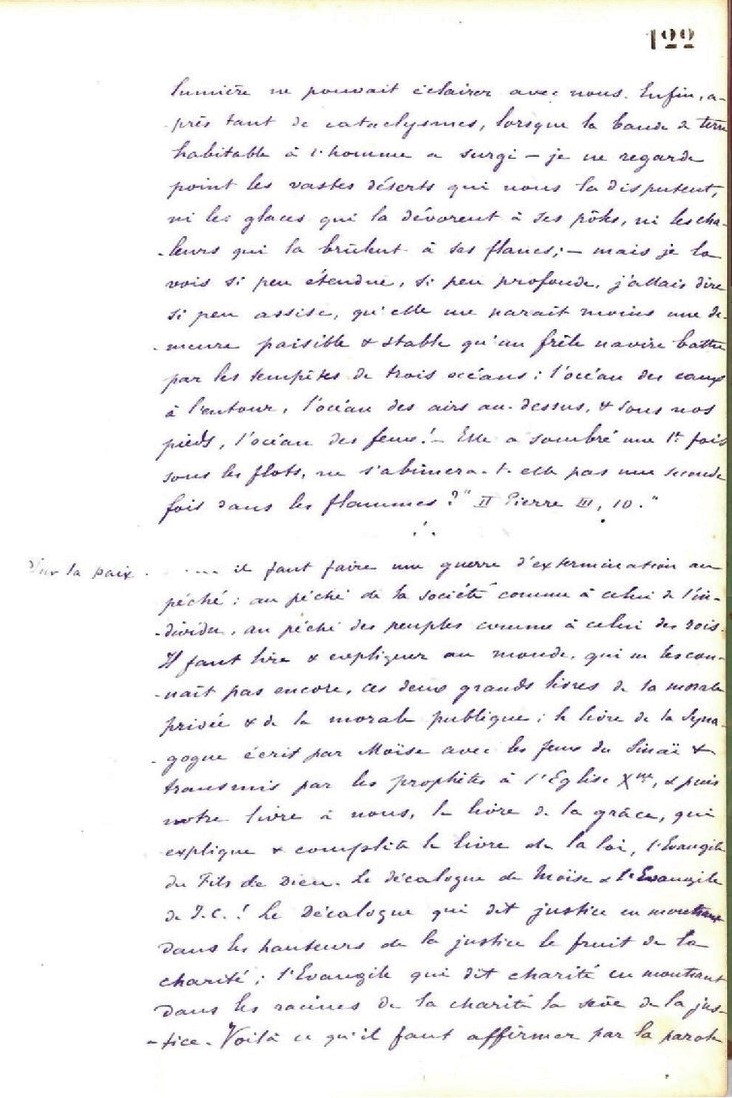 122
lumière ne pouvait éclairer avec nous. Enfin, a-
-près tant de cataclysmes, lorsque la bande de terre
habitable à l'homme a surgi — je ne regarde
point les vastes déserts qui nous la disputent,
ni les glaces qui la dévorent à ses pôles, ni les cha-
-leurs qui la brûlent à ses flancs; — mais je la
vois si peu étendue, si peu profonde, j'allais dire
si peu assise, qu'elle me paraît moins une de-
-meure paisible & stable qu'un frêle navire battu
par les tempêtes de trois océans: l'océan des eaux
à l'entour, l'océan des airs au-dessus, & sous nos
pieds, l'océan des feux! — Elle a sombré une 1re fois
sous les flots, ne s'abîmera-t-elle pas une seconde
fois dans les flammes?" II Pierre III, 10."
Sur la paix. ..... il faut faire une guerre d'extermination au
péché: au péché de la société comme à celui de l'in-
-dividu, au péché des peuples comme à celui des rois.
Il faut lire & expliquer au monde, qui ne les con-
-naît pas encore, ces deux grands livres de la morale
privée & de la morale publique; le livre de la Syna-
-gogue écrit par Moïse avec les feux du Sinaï &
transmis par les prophètes à l'Eglise Xne, & puis
notre livre à nous, le livre de la grâce, qui
explique & complète le livre de la loi, l'Evangile
du Fils de Dieu. Le décalogue de Moïse & l'Evangile
de J.C.! Le Décalogue qui dit justice en montrant
dans les hauteurs de la justice le fruit de la
charité; l'Evangile qui dit charité en montrant
dans les racines de la charité la sève de la jus-
-tice. Voilà ce qu'il faut affirmer par la parole